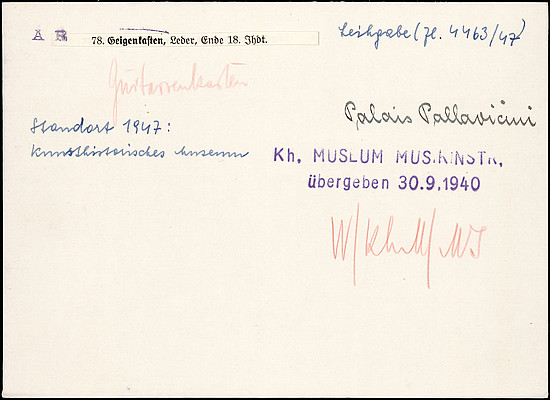 AR
78. Geigenkasten, Leder, Ende 18. Jhdt.
Leihgabe (Zl. 4463/47)
Guitarrenkasten
Palais Pallavicini
Standort 1947:
Kunsthistorisches Museum
Kh. MUSEUM MUS.KINSTR.
übergeben 30.9.1940
W/KhM/MI